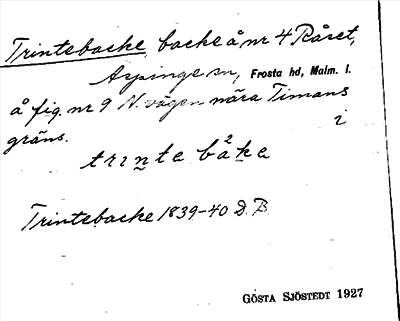 Trintebacke, backe å nr 4 Råset,
Äspinge sn, Frosta hd, Malm. l.
å fig. nr 9 N. vägen nära Timans
gräns. i
trinte båke
2
Trintebacke 1839-40 D. B.
GÖSTA SJÖSTEDT 1927